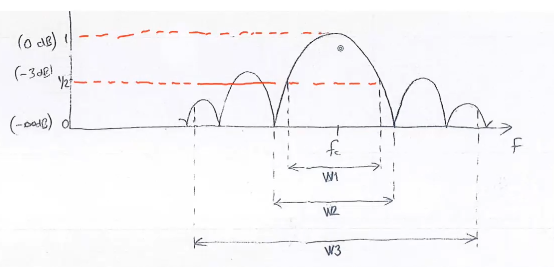 (0 dB) 1
(-3dB) 1/2
(-∞dB) 0
fc
f
W1
W2
W3